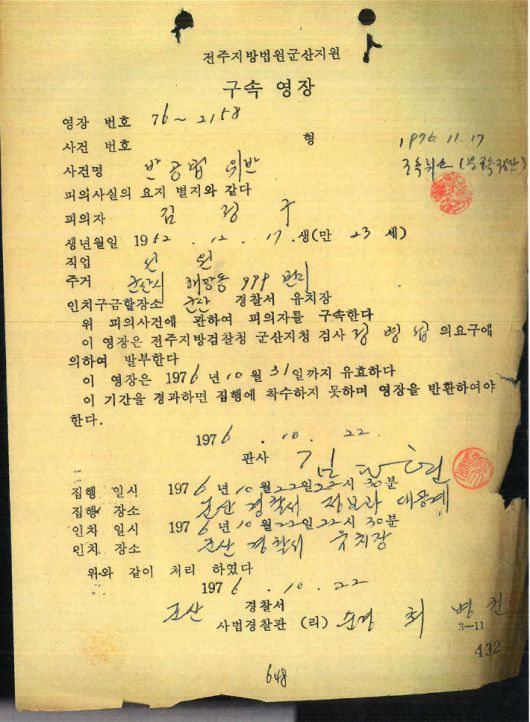 전주지방법원군산지원
구속 영장
영장 번호 76~2158
사건 번호 형
1976 11.17
사건명 반공법 위반
구속취소
피의사실의 요지 별지와 같다
피의자 김 정 구
생년월일 1952 . 12 . 17 .생(만 23 세)
직업 선 원
주거 군산시 해망동 999 번지
인치구금할장소 군산 경찰서 유치장
위 피의사건에 관하여 피의자를 구속한다
이 영장은 전주지방검찰청 군산지청 검사 정 병 의요구에
의하여 발부한다
이 영장은 1976 년 10 월 31 일까지 유효하다
이 기간을 경과하면 집행에 착수하지 못하며 영장을 반환하여야
한다.
1976 . 10 . 22
판사 김 현
집행 일시 1976 년 10 월 22 일 22 시 30 분
집행 장소 군산 경찰서 정보과 대공계
인차 일시 1976 년 10 월 22 일 22 시 30 분
인치 장소 군산 경찰서 유치장
위와 같이 처리 하였다
1976 . 10 . 22
군산 경찰서
사법경찰관 (리) 순경 최 병
3—11
432
648